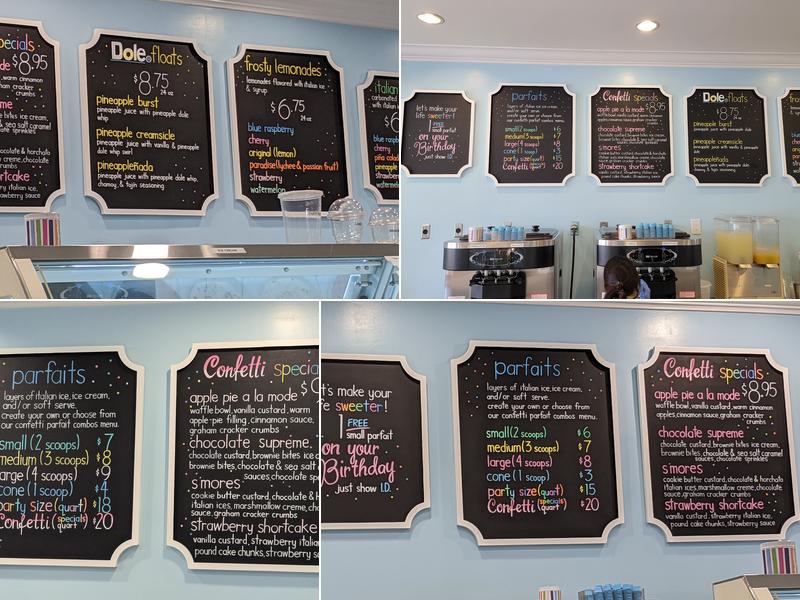 specials
$8.95
warm cinnamon
crumbs
me
ice cream,
sea salt caramel
sprinkles
chocolate & horchata
creme, chocolate
crumbs
shortcake
italian ice,
strawberry sauce
Dole floats
$8.75
24 oz
pineapple burst
pineapple juice with pineapple dole
whip
pineapple creamsicle
pineapple juice with vanilla & pineapple
dole whip swirl
pineappleñada
pineapple juice with pineapple dole whip,
chamoy, & tajin seasoning
frosty lemonades
lemonades flavored with italian ice
& syrup
$6.75
24 oz
blue raspberry
cherry
original (lemon)
paradise(lychee & passion fruit)
strawberry
watermelon
italian
carbonated
with italian
$6
blue ra
cherry
piña colada
let's make your
life sweeter!
1 FREE
small parfait
on your
Birthday
just show I.D.
parfaits
layers of italian ice, ice cream,
and/or soft serve.
create your own or choose from
our confetti parfait combos menu.
small(2 scoops) $6
medium(3 scoops) $7
large(4 scoops) $8
cone (1 scoop) $3
party size(quart) $15
Confetti (specials quart) $20
Confetti specials
apple pie a la mode $8.95
waffle bowl, vanilla custard, warm cinnamon
apples, cinnamon sauce, graham cracker
crumbs
chocolate supreme
chocolate custard, brownie bites ice cream,
brownie bites, chocolate & sea salt caramel
sauces, chocolate sprinkles
s'mores
cookie butter custard, chocolate & horchata
italian ices, marshmallow creme, chocolate
sauce, graham cracker crumbs
strawberry shortcake
vanilla custard, strawberry italian ice,
pound cake chunks, strawberry sauce
Dole floats
$8.75
24 oz
pineapple burst
pineapple juice with pineapple dole
whip
pineapple creamsicle
pineapple juice with vanilla & pineapple
dole whip swirl
pineappleñada
pineapple juice with pineapple dole whip,
chamoy, & tajin seasoning
parfaits
layers of italian ice, ice cream,
and/or soft serve.
create your own or choose from
our confetti parfait combos menu.
small(2 scoops) $7
medium(3 scoops) $8
large (4 scoops) $9
cone (1 scoop) $4
party size(quart) $18
Confetti (specials quart) $20
Confetti specia
apple pie a la mode
waffle bowl, vanilla custard, warm
apple-pie filling, cinnamon sauce,
graham cracker crumbs
chocolate supreme
chocolate custard, brownie bites ice c
brownie bites, chocolate & sea salt c
sauces, chocolate sp
s'mores
cookie butter custard, chocolate & h
italian ices, marshmallow creme, cho
sauce, graham cracker crumbs
strawberry shortcake
vanilla custard, strawberry italian
pound cake chunks, strawberry s
t's make your
fe sweeter!
1 FREE
small parfait
on your
Birthday
just show I.D.
parfaits
layers of italian ice, ice cream,
and/or soft serve.
create your own or choose from
our confetti parfait combos menu.
small(2 scoops) $6
medium(3 scoops) $7
large(4 scoops) $8
cone (1 scoop) $3
party size(quart) $15
Confetti (specials quart) $20
Confetti specials
apple pie a la mode $8.95
waffle bowl, vanilla custard, warm cinnamon
apples, cinnamon sauce, graham cracker
crumbs
chocolate supreme
chocolate custard, brownie bites ice cream,
brownie bites, chocolate & sea salt caramel
sauces, chocolate sprinkles
s'mores
cookie butter custard, chocolate & horchata
italian ices, marshmallow creme, chocolate
sauce, graham cracker crumbs
strawberry shortcake
vanilla custard, strawberry italian ice,
pound cake chunks, strawberry sauce